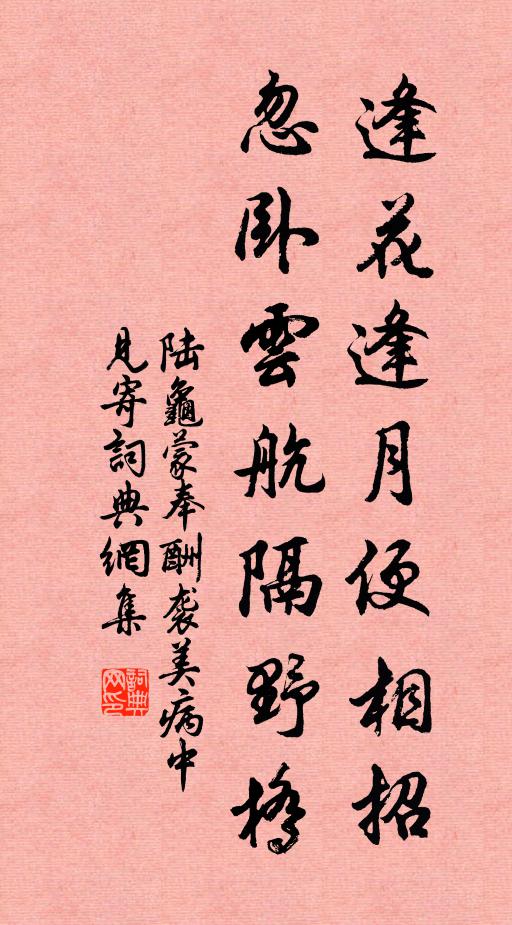 逢花逢月便相招
忽卧雲航隔野橋
陆龜蒙奉酬袭美病中
見寄詞典網集
詞典网印